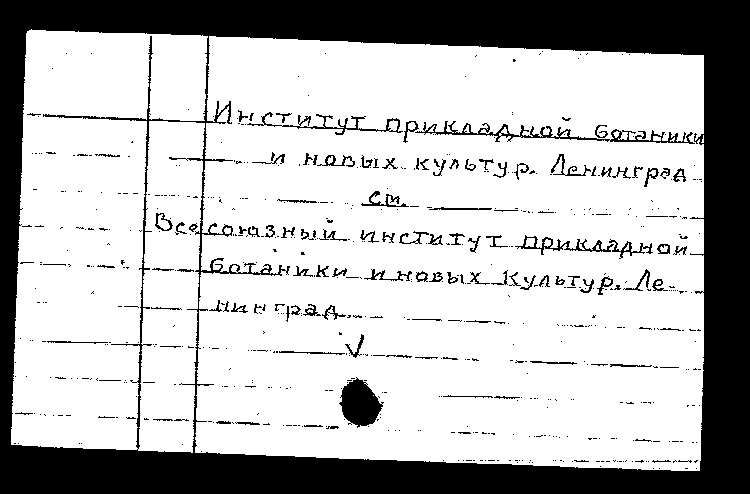 Институт прикладной ботаники
и новых культур. Ленинград
см.
Всесоюзный институт прикладной
ботаники и новых культур. Ле-
нинград